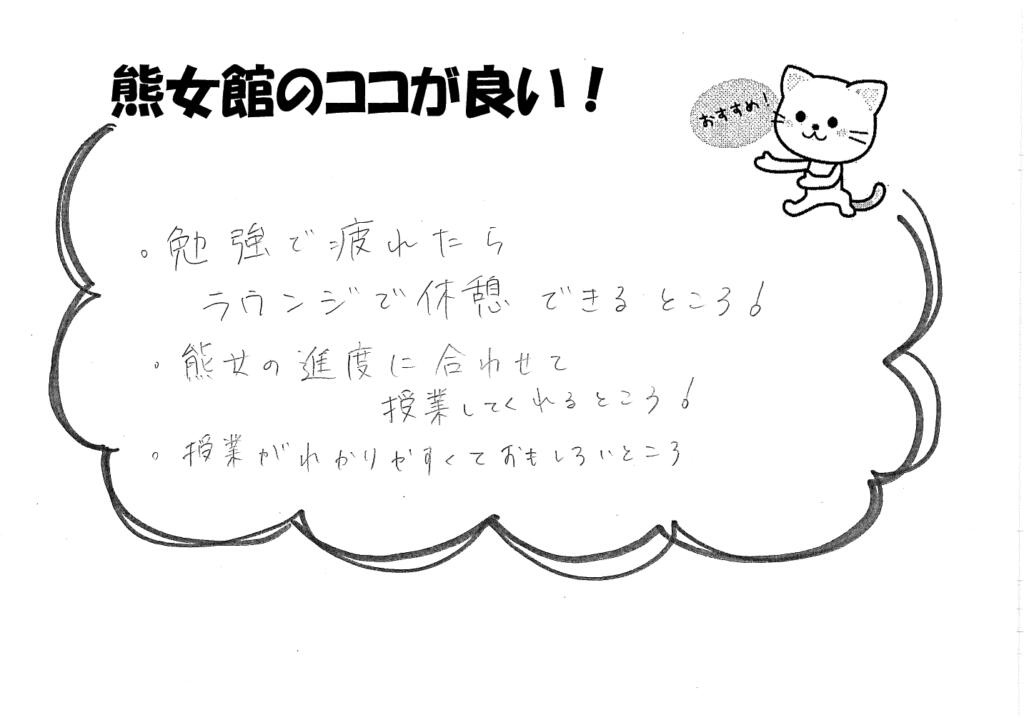 熊女館のココが良い！
おすすめ！
。勉強で疲れたら
ラウンジで休憩できるところ！
。熊女の進度に合わせて
授業してくれるところ！
。授業がわかりやすくておもしろいところ